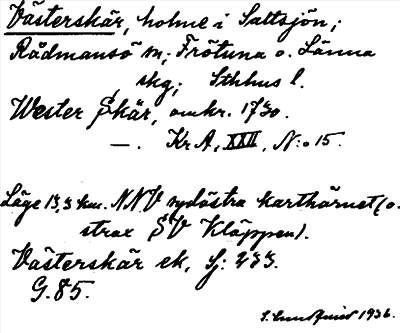 Västerskär, holme i Saltsjön;
Rådmansö sn; Frötuna o. Länna
skg; Sthlms l.
Wester Skär, omkr. 1730.
—. Kr A, XXII, N:o 15.
Läge 13,3 km. NNV sydöstra karthörnet (o.
strax SV Kläppen).
Västerskär ek, Sj: 233.
G. 85.
1936.